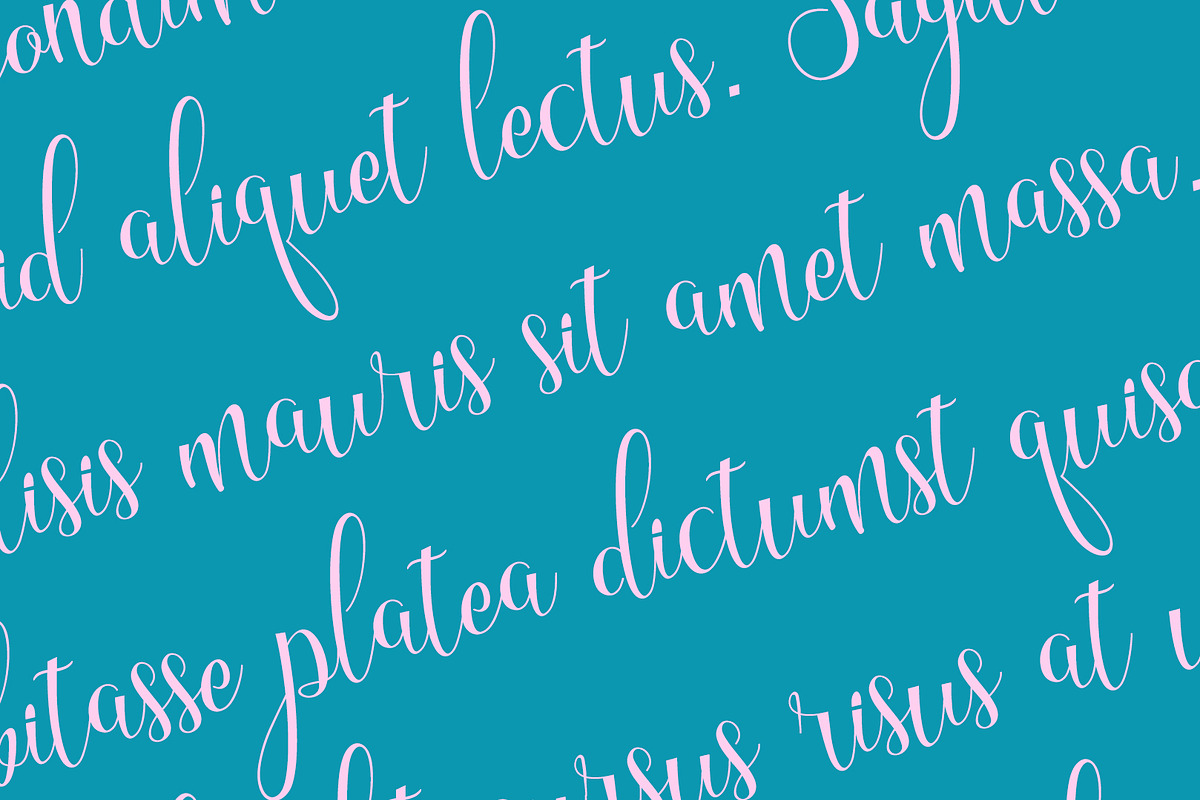 id aliquet lectus. Sagitt
lisis mauris sit amet massa.
bitasse platea dictumst quisq
ursus risus at u